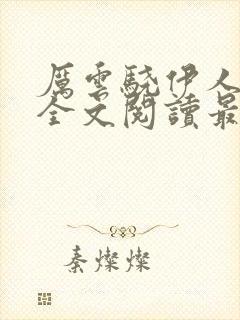 厲雲驍伊人
全文閱讀最
秦燦燦